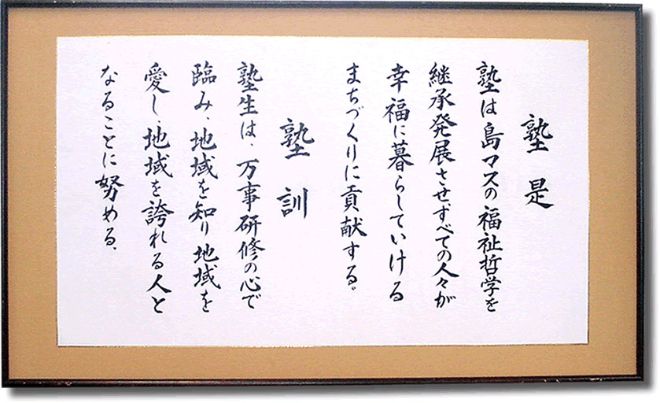 塾是
塾は島マスの福祉哲学を
継承発展させすべての人々が
幸福に暮らしていける
まちづくりに貢献する。
塾訓
塾生は、万事研修の心で
臨み、地域を知り地域を
愛し、地域を誇れる人と
なることに努める、